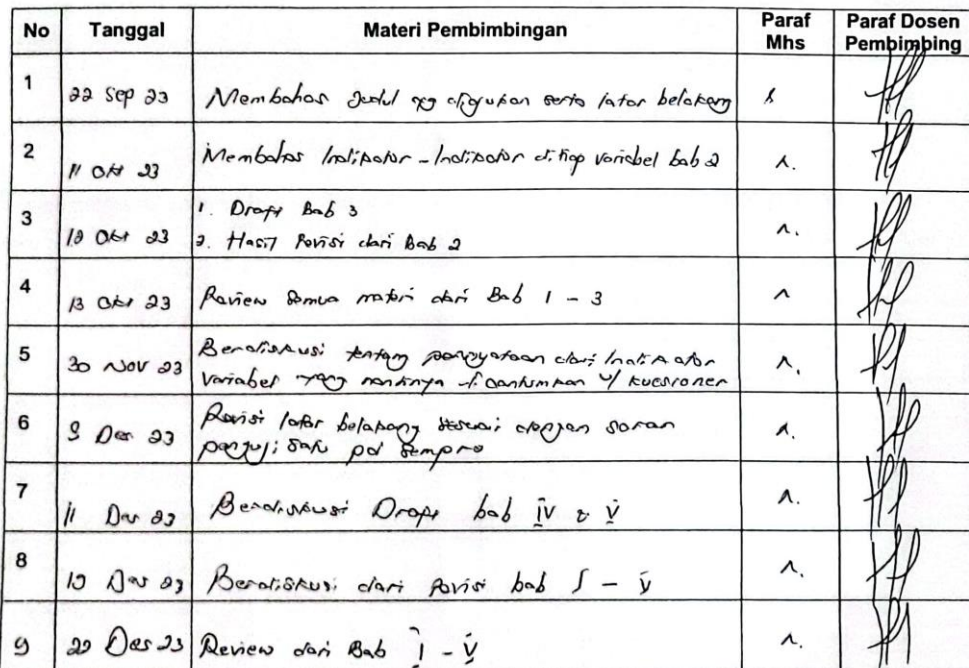 No Tanggal Materi Pembimbingan Paraf Mhs Paraf Dosen Pembimbing
1 22 Sep 23 Membahas Judul yg diajukan serta latar belakang
2 11 Okt 23 Membahas Indikator - Indikator di tiap variabel bab 2
3 1. Draft Bab 3
Okt 23 2. Hasil Revisi dari Bab 2
4 13 Okt 23 Review Semua materi dari Bab 1 - 3
5 30 Nov 23 Berdiskusi tentang pernyataan dari Indikator
variabel yang nantinya dicantumkan u/ kuesioner
6 9 Des 23 Revisi latar belakang sesuai dengan saran
penguji satu pd Sempro
7 11 Des 23 Berdiskusi Draft bab IV & V
8 Des 23 Berdiskusi dari Revisi bab I - V
9 Des 23 Review dari Bab I - V